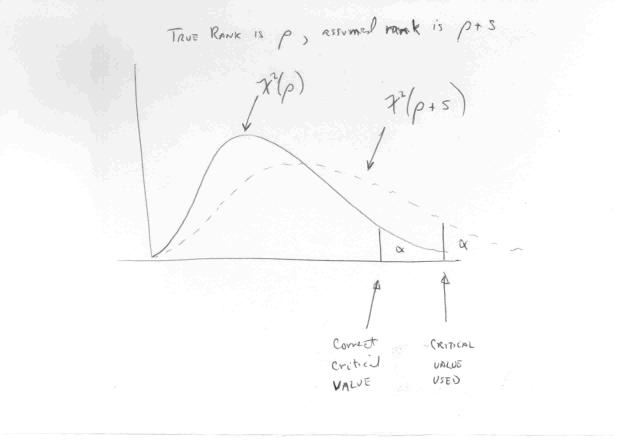 TRUE RANK IS ρ, assumed rank is ρ+s
χ²(ρ)
χ²(ρ+s)
α
α
Correct
Critical
VALUE
CRITICAL
VALUE
USED